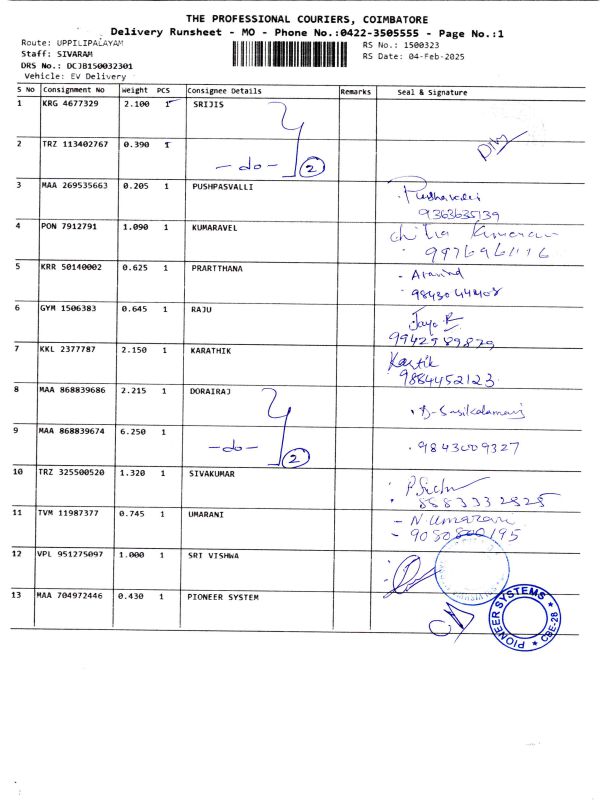 THE PROFESSIONAL COURIERS, COIMBATORE
Delivery Runsheet - MO - Phone No.:0422-3505555 - Page No.:1
Route: UPPILIPALAYAM
RS No.: 1500323
Staff: SIVARAM
RS Date: 04-Feb-2025
DRS No.: DCJB150032301
Vehicle: EV Delivery
S No Consignment No Weight PCS Consignee Details Remarks Seal & Signature
1 KRG 4677329 2.100 1 SRIJIS
2 TRZ 113402767 0.390 1
-do- 2
3 MAA 269535663 0.205 1 PUSHPASVALLI
9363635139
4 PON 7912791 1.090 1 KUMARAVEL
5 KRR 50140002 0.625 1 PRARTTHANA - Aravind
6 GYM 1506383 0.645 1 RAJU
9942989829
7 KKL 2377787 2.150 1 KARATHIK Kartik
9884452123
8 MAA 868839686 2.215 1 DORAIRAJ
9 MAA 868839674 6.250 1
-do- 2 9843009327
10 TRZ 325500520 1.320 1 SIVAKUMAR
8883332828
11 TVM 11987377 0.745 1 UMARANI - N.Umarani
- 9080800195
12 VPL 951275097 1.000 1 SRI VISHWA
13 MAA 704972446 0.430 1 PIONEER SYSTEM
PIONEER SYSTEMS ★ CBE-28 ★